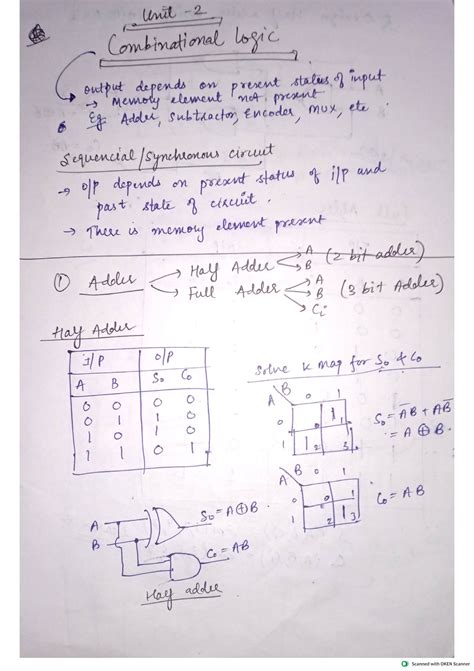 Unit - 2
Combinational logic
output depends on present status of input
→ Memory element not present
Eg Adder, Subtractor, Encoder, Mux, etc
Sequencial/Synchronous circuit
→ o/p depends on present status of i/p and
past state of circuit.
→ There is memory element present
① Adder → Half Adder → A B (2 bit adder)
→ Full Adder → A B Ci (3 bit Adder)
Half Adder
I/P O/P
A B S₀ C₀
0 0 0 0
0 1 1 0
1 0 1 0
1 1 0 1
Solve K map for S₀ & C₀
B
A 0 1
0 1 1
1 1 2 3
S₀ = A̅B + AB̅
= A ⊕ B
B
A 0 1
0 0 1
1 2 1 3
C₀ = AB
A
B
S₀ = A⊕B
C₀ = AB
Half adder
Scanned with OKEN Scanner